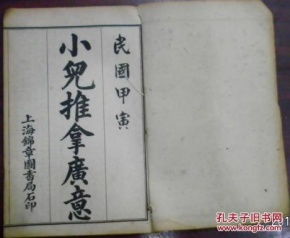 民國甲寅
小兒推拿廣意
上海錦章圖書局石印
孔夫子旧书网